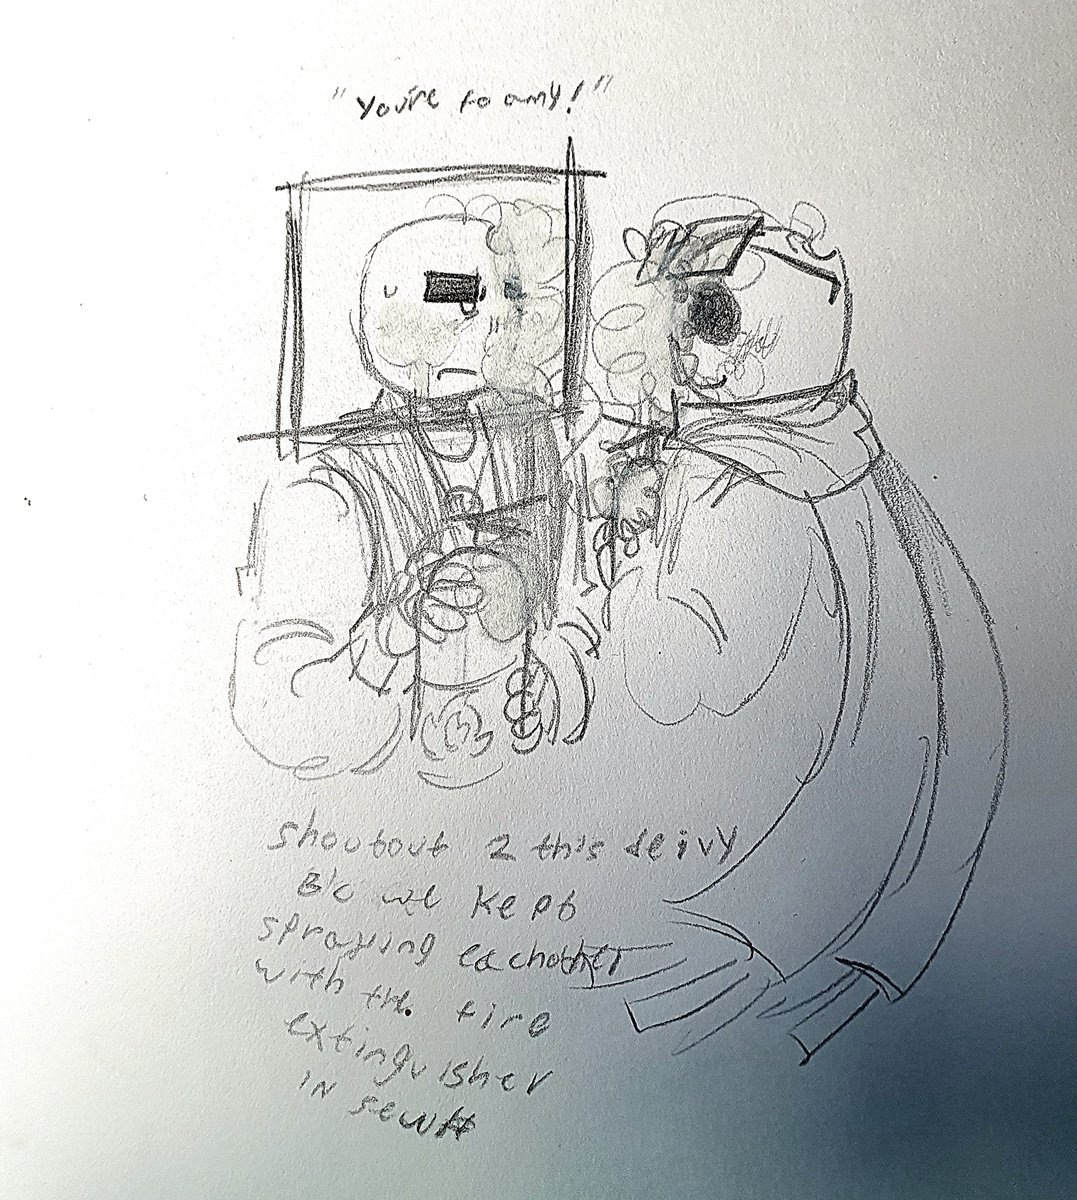 "You're foamy!"
shoutout 2 this deivy
B'c we kept
spraying eachother
with the fire
extinguisher
in sewh